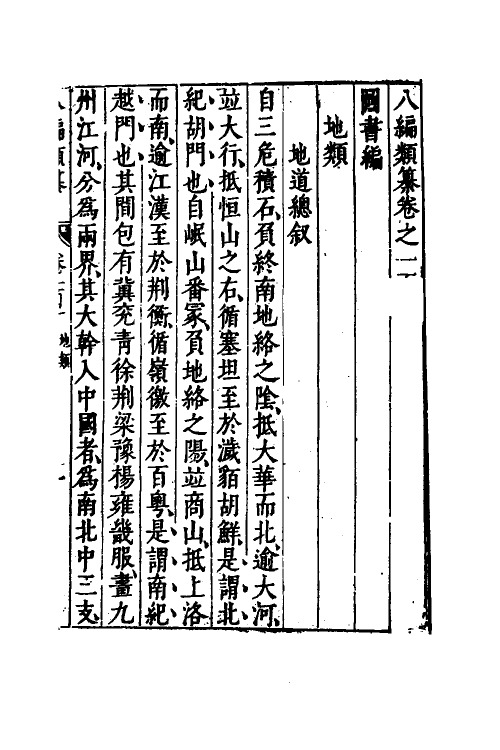 八編類纂卷之二
圖書編
地類
地道總叙
自三危積石負終南地絡之陰抵大華而北逾大河
並大行抵恒山之右循塞垣至於濊貊胡鮮是謂北
紀胡門也自岷山番冢負地絡之陽並商山抵上洛
而南逾江漢至於荆衡循嶺徼至於百粤是謂南紀
越門也其間包有冀兖青徐荆梁豫楊雍畿服畫九
州江河分爲兩界其大幹入中國者爲南北中三支
八編類纂 地類 一